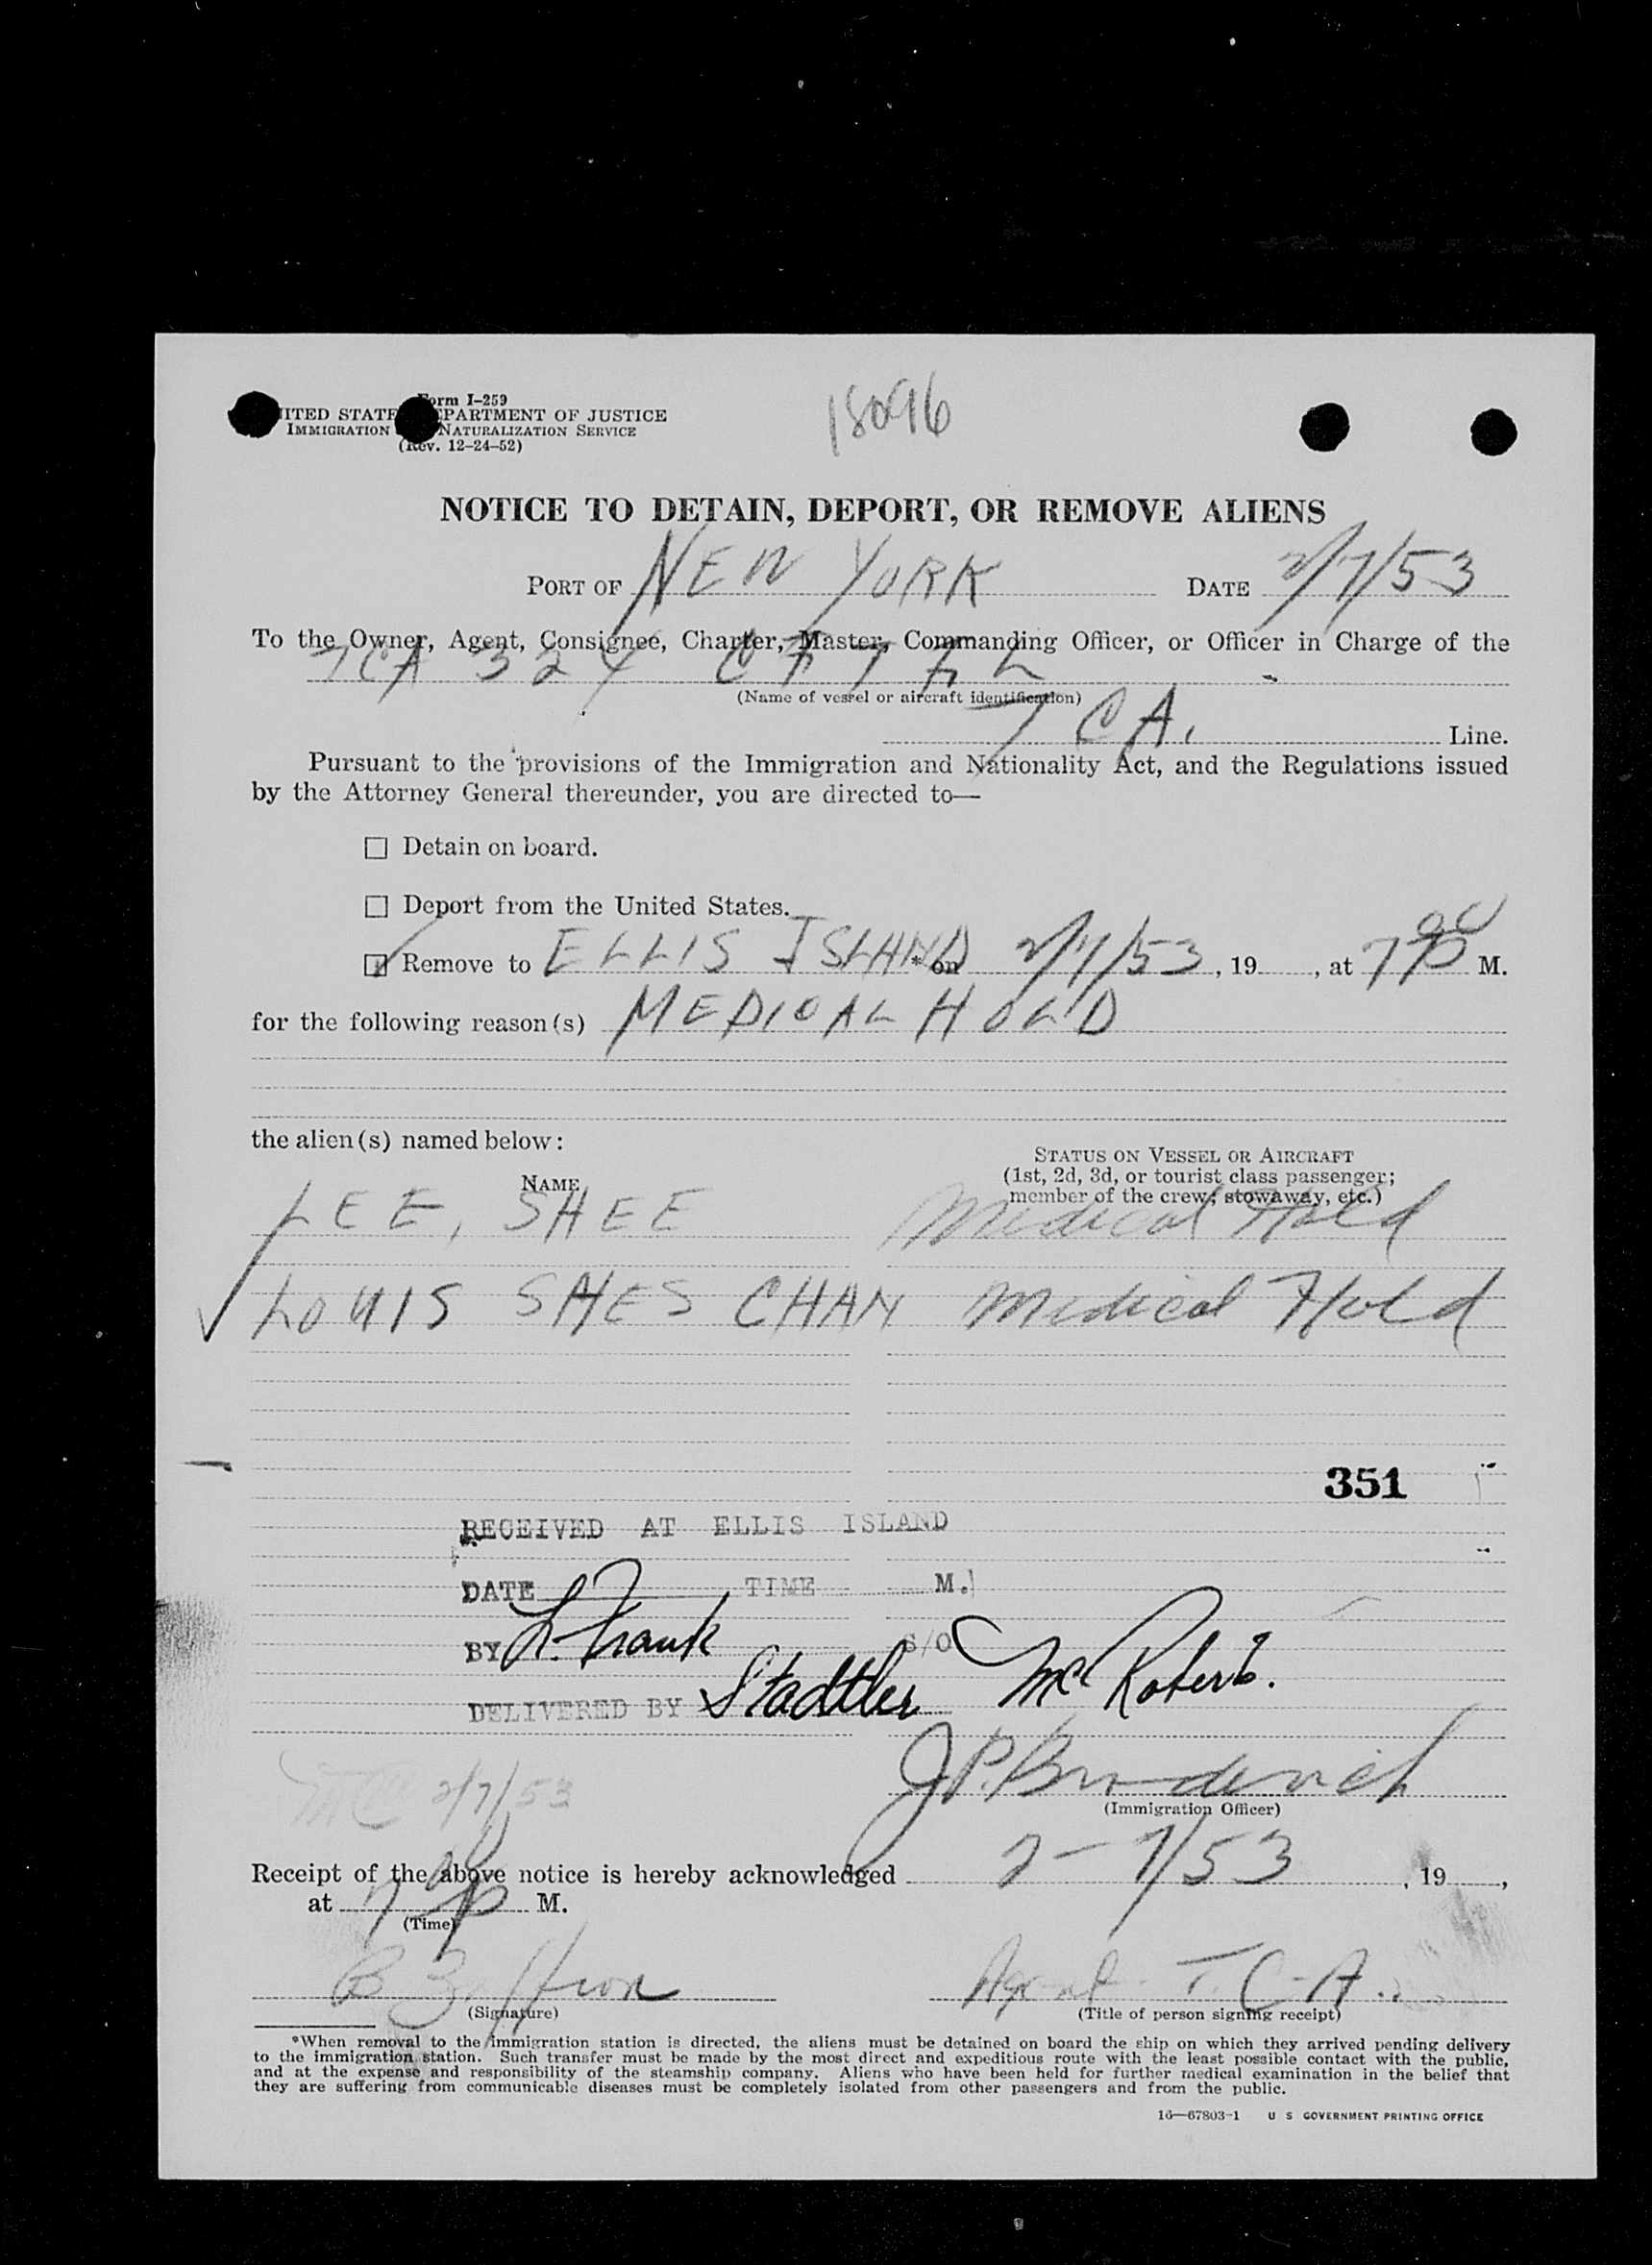 Form I-259
UNITED STATES DEPARTMENT OF JUSTICE
IMMIGRATION NATURALIZATION SERVICE
(Rev. 12-24-52)
NOTICE TO DETAIN, DEPORT, OR REMOVE ALIENS
PORT OF NEW YORK DATE 2/7/53
To the Owner, Agent, Consignee, Charter, Master, Commanding Officer, or Officer in Charge of the
TCA 324
(Name of vessel or aircraft identification)
TCA. Line.
Pursuant to the provisions of the Immigration and Nationality Act, and the Regulations issued
by the Attorney General thereunder, you are directed to—
☐ Detain on board.
☐ Deport from the United States.
☑ Remove to ELLIS ISLAND * on 2/7/53, 19 , at 7 00 P M.
for the following reason(s) MEDICAL HOLD
the alien(s) named below:
NAME
STATUS ON VESSEL OR AIRCRAFT
(1st, 2d, 3d, or tourist class passenger;
member of the crew; stowaway, etc.)
LEE, SHEE Medical Hold
✓ LOUIS SHES CHAN Medical Hold
351
RECEIVED AT ELLIS ISLAND
DATE TIME M.
BY L. Frank S/O
DELIVERED BY Stadtler McRoberts.
2/7/53
J.P. Broderick
(Immigration Officer)
Receipt of the above notice is hereby acknowledged 2-7/53, 19 ,
at 7 P M.
(Time)
(Signature)
Agent T.C.A.
(Title of person signing receipt)
*When removal to the immigration station is directed, the aliens must be detained on board the ship on which they arrived pending delivery
to the immigration station. Such transfer must be made by the most direct and expeditious route with the least possible contact with the public,
and at the expense and responsibility of the steamship company. Aliens who have been held for further medical examination in the belief that
they are suffering from communicable diseases must be completely isolated from other passengers and from the public.
16—67803-1 U S GOVERNMENT PRINTING OFFICE